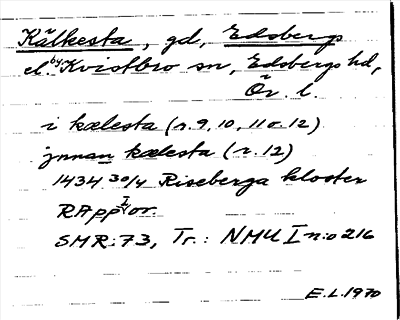 Kälkesta, gd, Edsbergs
el. by Kvistbro sn, Edsbergs hd,
Ör. l.
i kælesta (r. 9, 10, 11 o. 12)
jnnan kælesta (r. 12)
1434 30/4 Riseberga kloster
RApp I or.
SMR: 73, Tr.: NMU I n:o 216
E.L. 1970